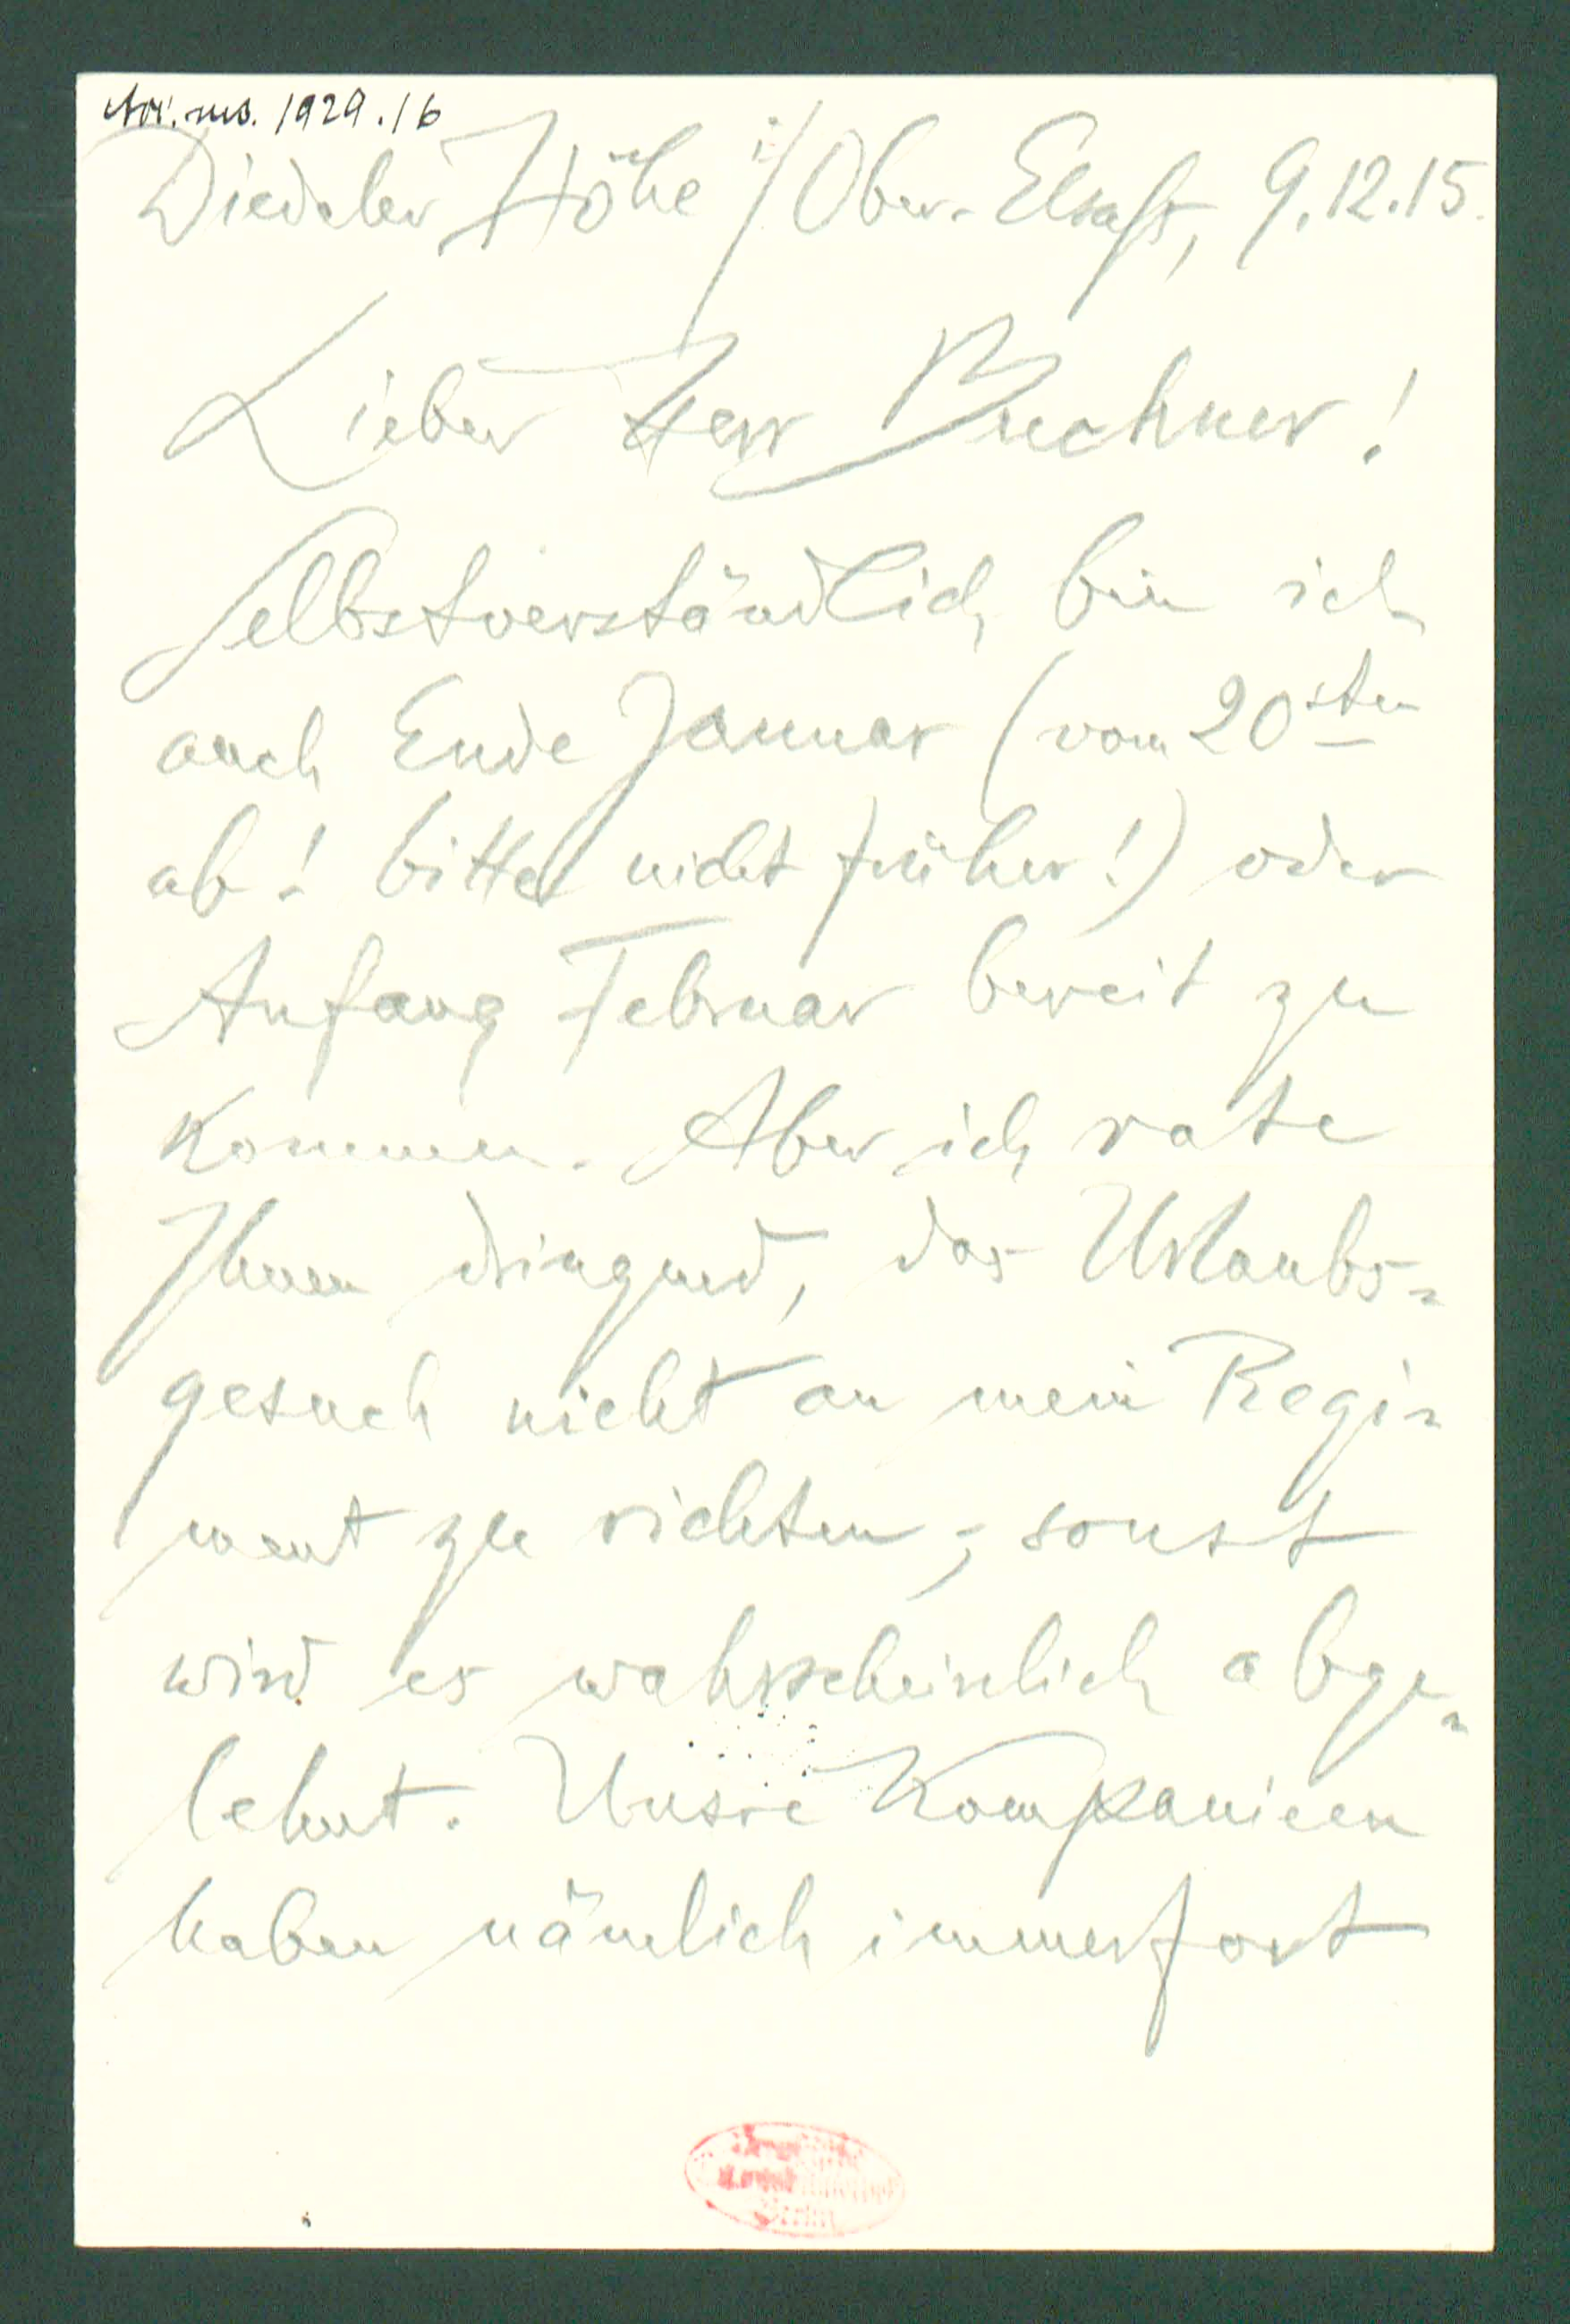 acc. ms. 1929.16
Diedoler Höhe i/Ober-Elsaß, 9.12.15.
Lieber Herr Buchner!
Selbstverständlich bin ich
auch Ende Januar (vom 20sten
ab! bitte nicht früher!) oder
Anfang Februar bereit zu
kommen. Aber ich rate
Ihnen dringend, das Urlaubs-
gesuch nicht an mein Regi-
ment zu richten; sonst
wird es wahrscheinlich abge-
lehnt. Unsre Kompanieen
haben nämlich immerfort
Berlin